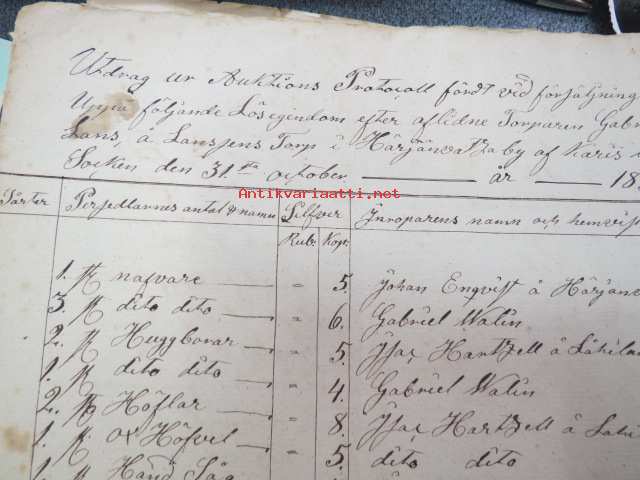 Utdrag ur Auktions Protocoll fördt vid försäljning
följande Lösegendom efter aflidne Torparen Gabr
Lans, å Lansjens Torp i Härjänvatza by af Karis
Socken den 31sta october ——— år —— 18
Antikvariaatti.net
Pärter Persedlarnes antal & namn Silfver Inroparens namn och hemvist
Rub: Kop:
1. st nafvare — " 5. Johan Enqvist å Härjänv
3. st dito dito — " 6. Gabriel Walin
2. st Huggborar — " 5. Isac Hartzell å Lahila
1. st dito dito — " 4. Gabriel Walin
2. st Höflar — " 8. Isac Hartzell å Lahi
1. st ox Höfvel — " 5. dito dito
1. st Hand Såg